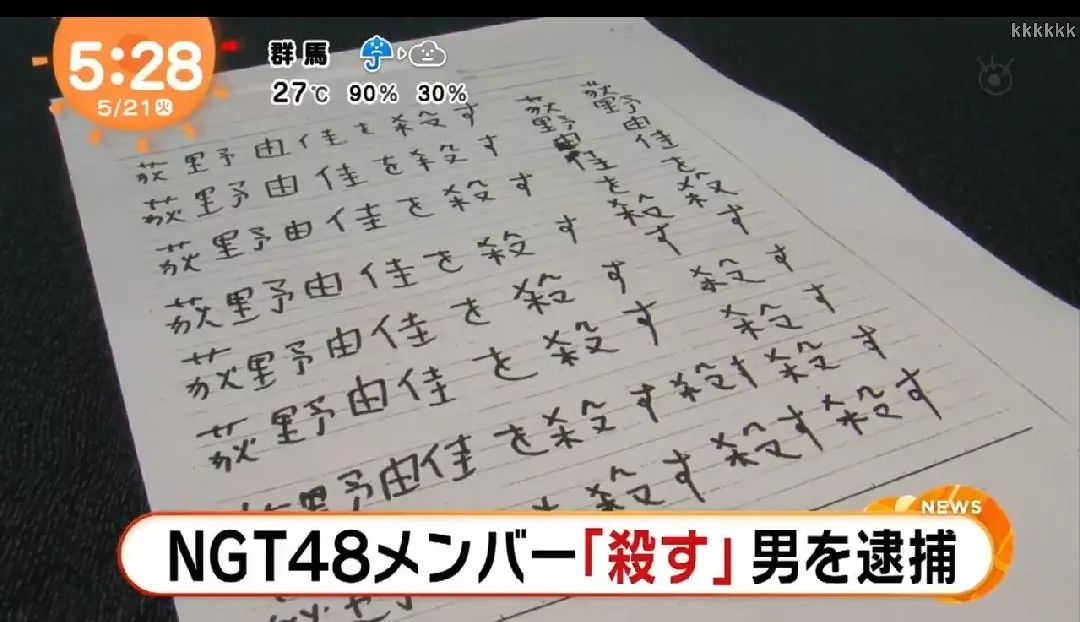 kkkkkk
5:28
5/21火
群馬
27℃ 90% 30%
荻野由佳を殺す
荻野由佳を殺す
荻野由佳を殺す
荻野由佳を殺す
荻野由佳を殺す
荻野由佳を殺す
荻野由佳を殺す 殺す
荻野由佳を殺す 殺す
荻野由佳を殺す殺す殺す
殺す殺す殺す
NEWS
NGT48メンバー「殺す」男を逮捕